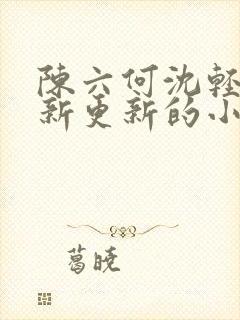 陳六何沈輕
新更新的小
葛曉